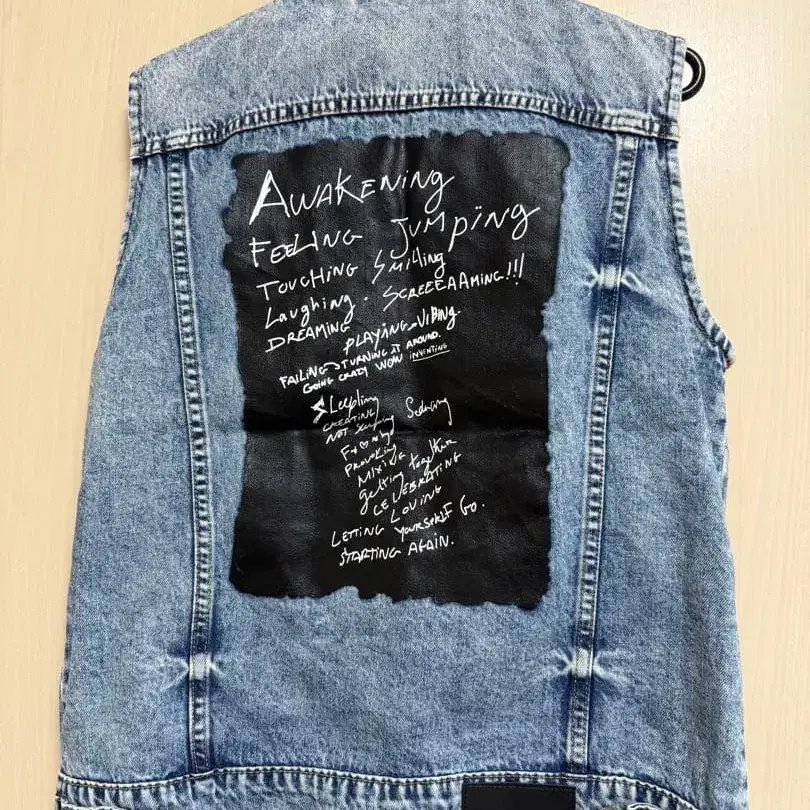 AWAKENING
FEELING JUMPING
TOUCHING SMILLING
LAUGHING. SCREEEAAMING!!!
DREAMING
PLAYING VIBING.
FAILING TURNING IT AROUND.
GOING CRAZY WOW INVENTING
SLEEPLING
CREATING
NOT SLEEPING SEDUCING
PROVOKING
MIXING
GETTING TOGETHER
CELEBRATING
LOVING
LETTING YOURSELF GO.
STARTING AGAIN.